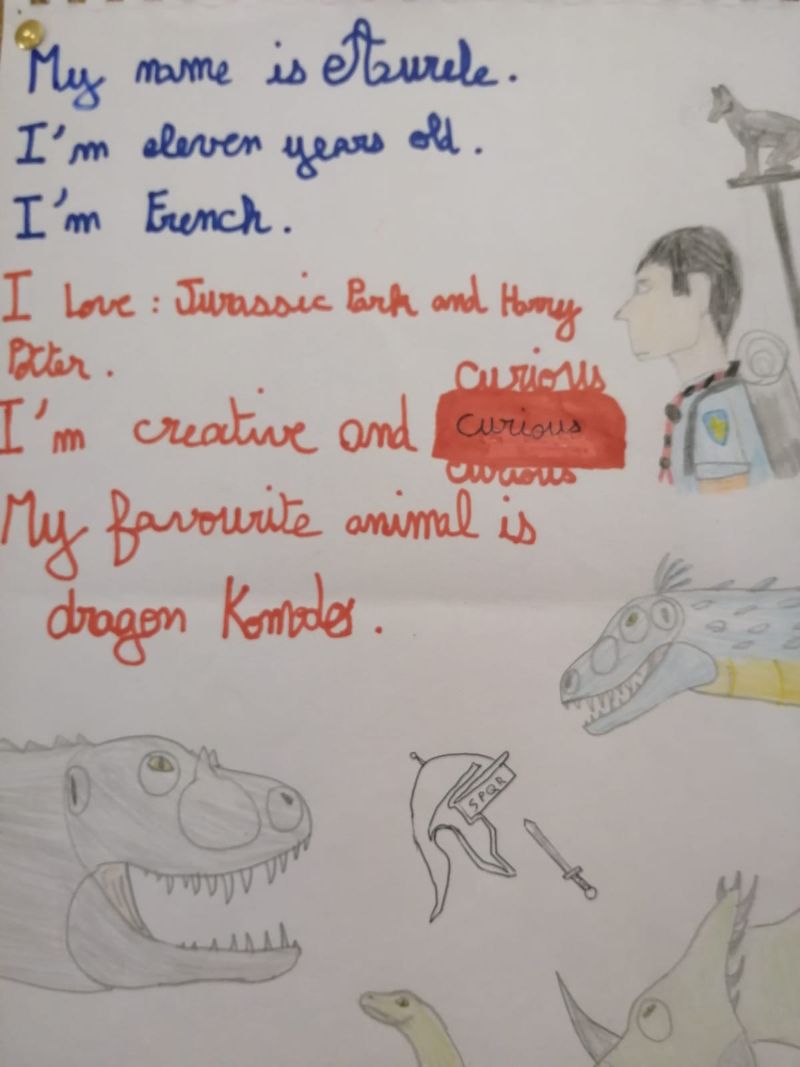 My name is Aurele.
I'm eleven years old.
I'm French.
I Love : Jurassic Park and Harry
Potter.
curious
I'm creative and curious
curious
My favourite animal is
dragon Komodos.
SPQR